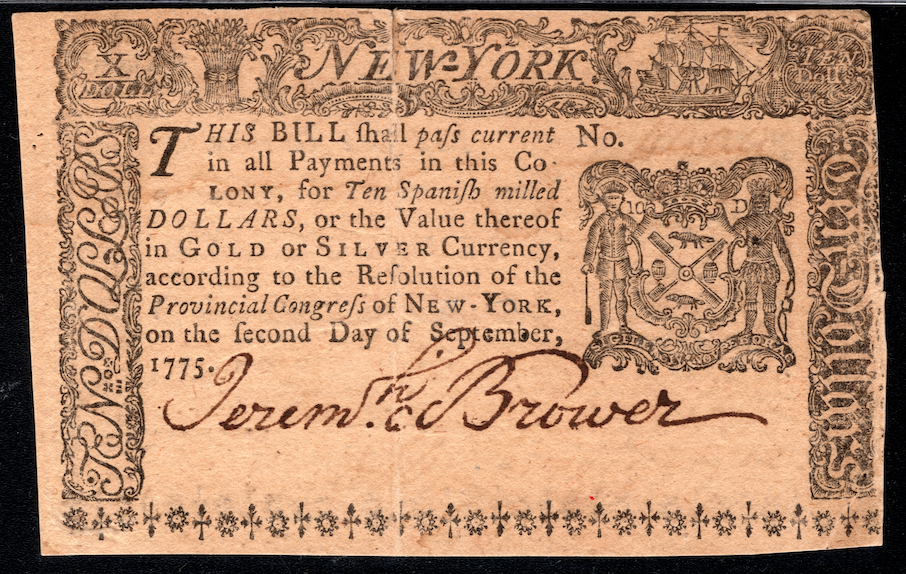 X
DOLL.
NEW-YORK.
TEN
Doll.
THIS BILL ſhall paſs current
in all Payments in this Co-
LONY, for Ten Spaniſh milled
DOLLARS, or the Value thereof
in GOLD or SILVER Currency,
according to the Reſolution of the
Provincial Congreſs of NEW-YORK,
on the ſecond Day of September,
1775.
No.
10 D
Jerem.h Brower
TEN DOLLARS
Ten Dollars